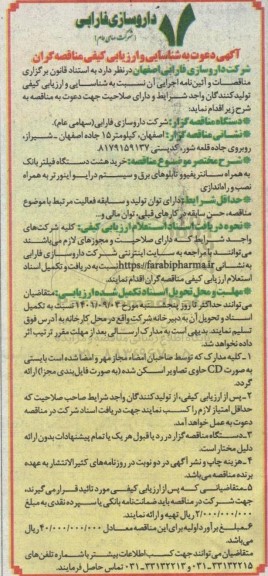 داروسازی فارابی
(شرکت سهامی عام)
آگهی دعوت به شناسایی و ارزیابی کیفی مناقصه گران
شرکت داروسازی فارابی اصفهان در نظر دارد به استناد قانون برگزاری
مناقصات و آئین نامه اجرایی آن نسبت به شناسایی و ارزیابی کیفی
تولیدکنندگان واجد شرایط و دارای صلاحیت جهت دعوت به مناقصه به
شرح زیر اقدام نماید:
دستگاه مناقصه گزار: شرکت داروسازی فارابی (سهامی عام).
نشانی مناقصه گزار: اصفهان، کیلومتر ۱۵ جاده اصفهان - شیراز،
روبروی جاده قلعه شور، کدپستی ۸۱۷۹۱۵۹۱۳۷
شرح مختصر موضوع مناقصه: خرید هشت دستگاه فیلر بانک
به همراه سانتریفیوو تابلوهای برق و سیستم درایو اینورتر به همراه
نصب و راه اندازی
حداقل شرایط: دارای توان تولید و سابقه فعالیت مرتبط با موضوع
مناقصه، حسن سابقه در کارهای قبلی، توان مالی و...
نحوه دریافت اسناد استعلام ارزیابی کیفی: کلیه شرکت های
واجد شرایط که دارای صلاحیت و مجوزهای لازم می باشند
می توانند با مراجعه به سایت اینترنتی شرکت داروسازی فارابی
به نشانی https://farabipharma.ir نسبت به دریافت و تکمیل اسناد
استعلام ارزیابی کیفی مناقصه گران اقدام نمایند.
مهلت و محل تحویل اسناد تکمیل شده ارزیابی: متقاضیان
می توانند حداکثر تا روز پنجشنبه مورخ ۱۴۰۱/۰۹/۰۳ نسبت به تکمیل
اسناد و تحویل آن به دبیرخانه شرکت واقع در محل کارخانه به آدرس فوق
تسلیم نمایند. بدیهی است به مدارک ارسالی بعد از مهلت مقرر ترتیب اثر
داده نخواهد شد.
۱- کلیه مدارک که توسط صاحبان امضاء مجاز مهر و امضا شده است بایستی
به صورت CD حاوی تصاویر اسکن شده (به صورت فایل بندی مجزا) ارائه
گردد.
۲- پس از ارزیابی کیفی، از تولیدکنندگان واجد شرایط صاحب صلاحیت که
حداقل امتیاز لازم را کسب نمایند جهت دریافت اسناد شرکت در مناقصه
دعوت به عمل خواهد آمد.
۳- دستگاه مناقصه گزار در رد یا قبول هر یک یا تمام پیشنهادات بدون ارائه
دلیل مختار است.
۴- هزینه چاپ و نشر آگهی در دو نوبت در روزنامه های کثیرالانتشار به عهده
برنده مناقصه می باشد.
۵- متقاضیانی که پس از ارزیابی کیفی مورد تائید قرار می گیرند،
جهت شرکت در مناقصه باید ضمانتنامه بانکی یا سپرده نقدی به مبلغ
۲/۰۰۰/۰۰۰/۰۰۰ ریال تهیه و ارائه نمایند.
۶- مبلغ برآورد اولیه برای این مناقصه معادل ۴۰/۰۰۰/۰۰۰/۰۰۰ ریال
می باشد.
متقاضیان می توانند جهت کسب اطلاعات بیشتر با شماره تلفن های
۰۳۱-۳۳۱۳۲۲۱۵ و ۰۳۱-۳۳۱۳۲۲۱۳ تماس حاصل فرمایند.